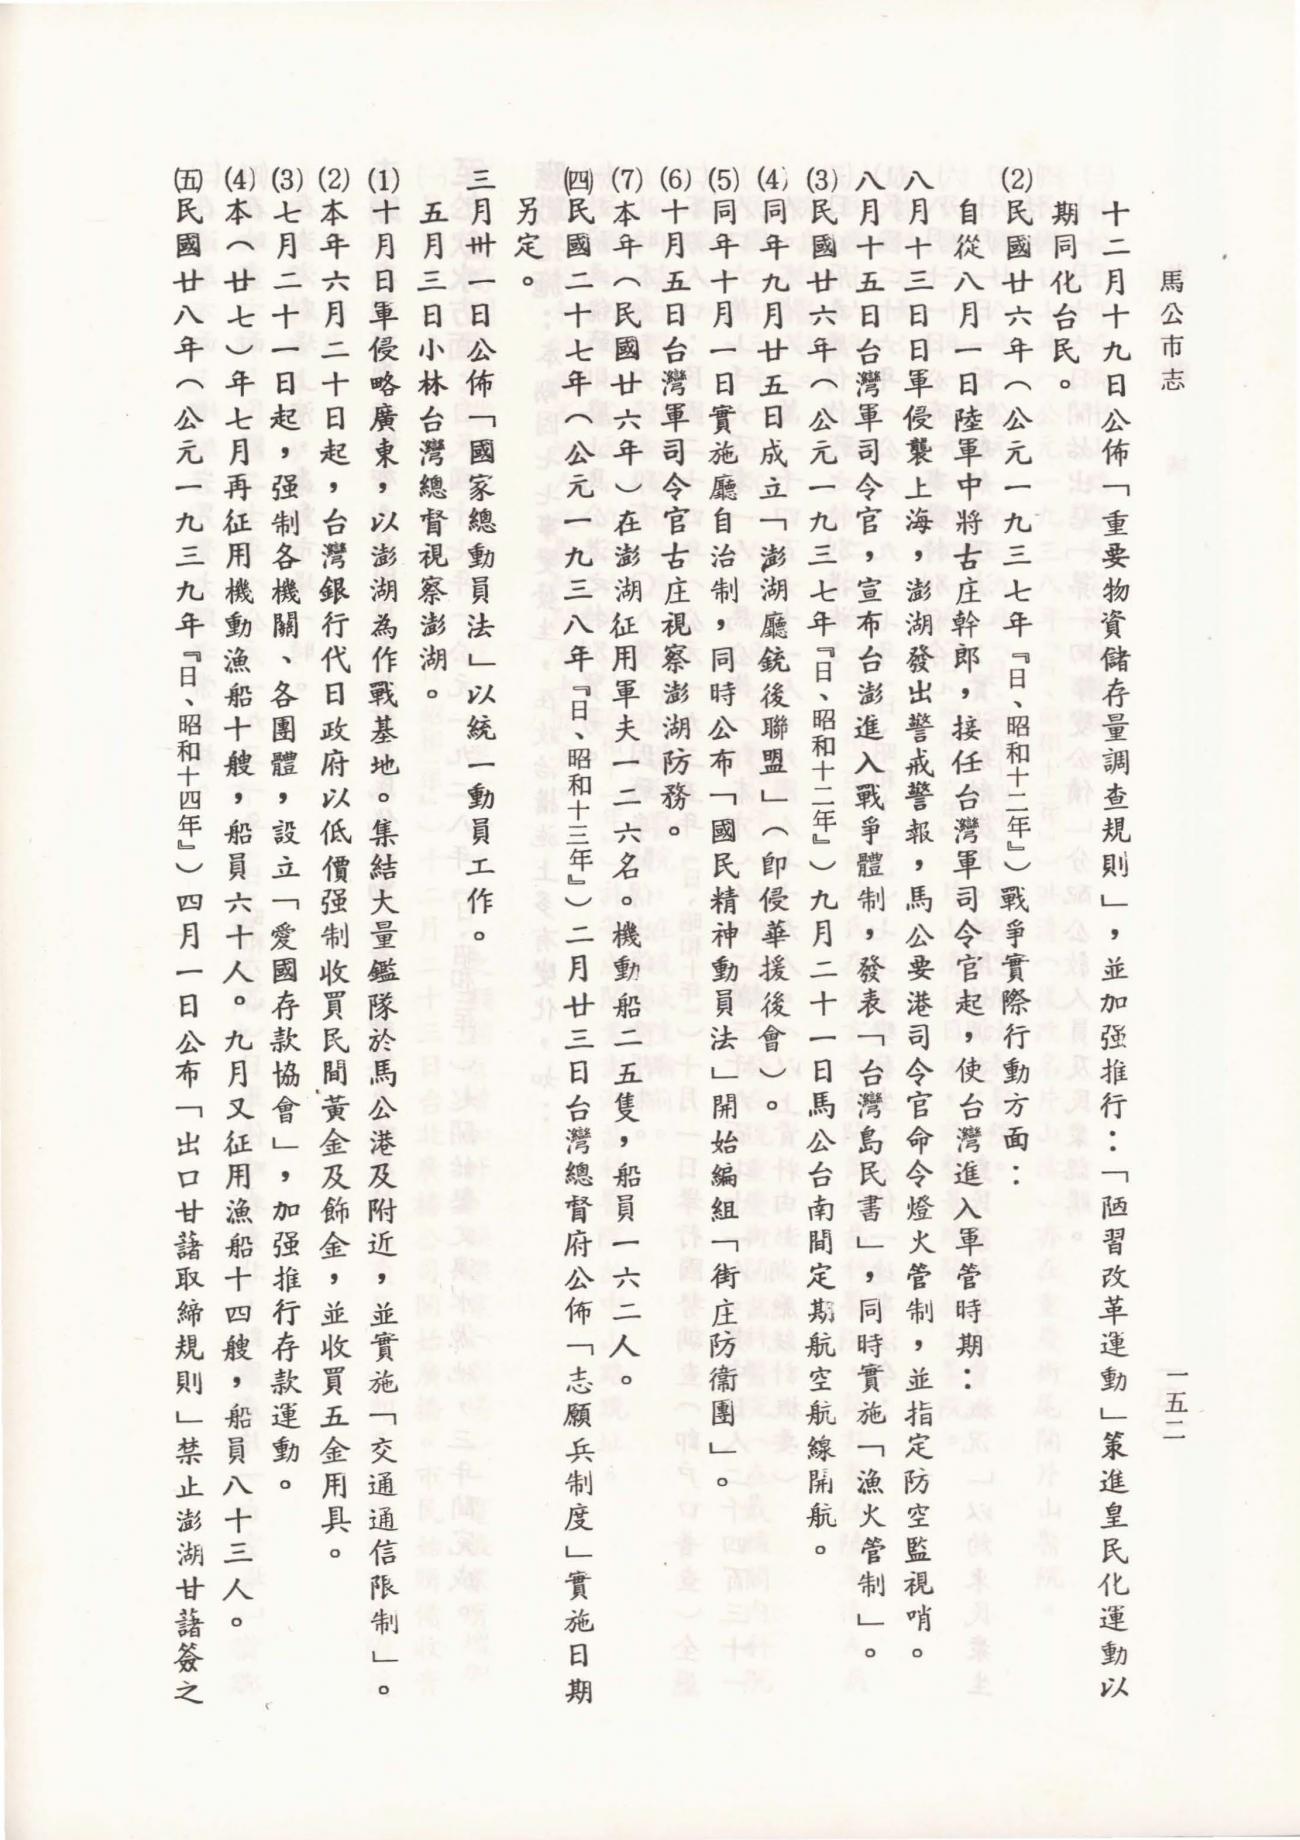 馬公市志
一五二
十二月十九日公佈「重要物資儲存量調查規則」，並加强推行：「陋習改革運動」策進皇民化運動以
期同化台民。
(2)民國廿六年（公元一九三七年『日、昭和十二年』）戰爭實際行動方面：
自從八月一日陸軍中將古庄幹郎，接任台灣軍司令官起，使台灣進入軍管時期：
八月十三日日軍侵襲上海，澎湖發出警戒警報，馬公要港司令官命令燈火管制，並指定防空監視哨。
八月十五日台灣軍司令官，宣布台澎進入戰爭體制，發表「台灣島民書」，同時實施「漁火管制」。
(3)民國廿六年（公元一九三七年『日、昭和十二年』）九月二十一日馬公台南間定期航空航線開航。
(4)同年九月廿五日成立「澎湖廳銃後聯盟」（即侵華援後會）。
(5)同年十月一日實施廳自治制，同時公布「國民精神動員法」開始編組「街庄防衞團」。
(6)十月五日台灣軍司令官古庄視察澎湖防務。
(7)本年（民國廿六年）在澎湖征用軍夫一二六名。機動船二五隻，船員一六二人。
㈣民國二十七年（公元一九三八年『日、昭和十三年』）二月廿三日台灣總督府公佈「志願兵制度」實施日期
另定。
三月卅一日公佈「國家總動員法」以統一動員工作。
五月三日小林台灣總督視察澎湖。
(1)十月日軍侵略廣東，以澎湖為作戰基地。集結大量鑑隊於馬公港及附近，並實施「交通通信限制」。
(2)本年六月二十日起，台灣銀行代日政府以低價强制收買民間黃金及飾金，並收買五金用具。
(3)七月二十一日起，强制各機關、各團體，設立「愛國存款協會」，加强推行存款運動。
(4)本（廿七）年七月再征用機動漁船十艘，船員六十人。九月又征用漁船十四艘，船員八十三人。
㈤民國廿八年（公元一九三九年『日、昭和十四年』）四月一日公布「出口甘藷取締規則」禁止澎湖甘藷簽之